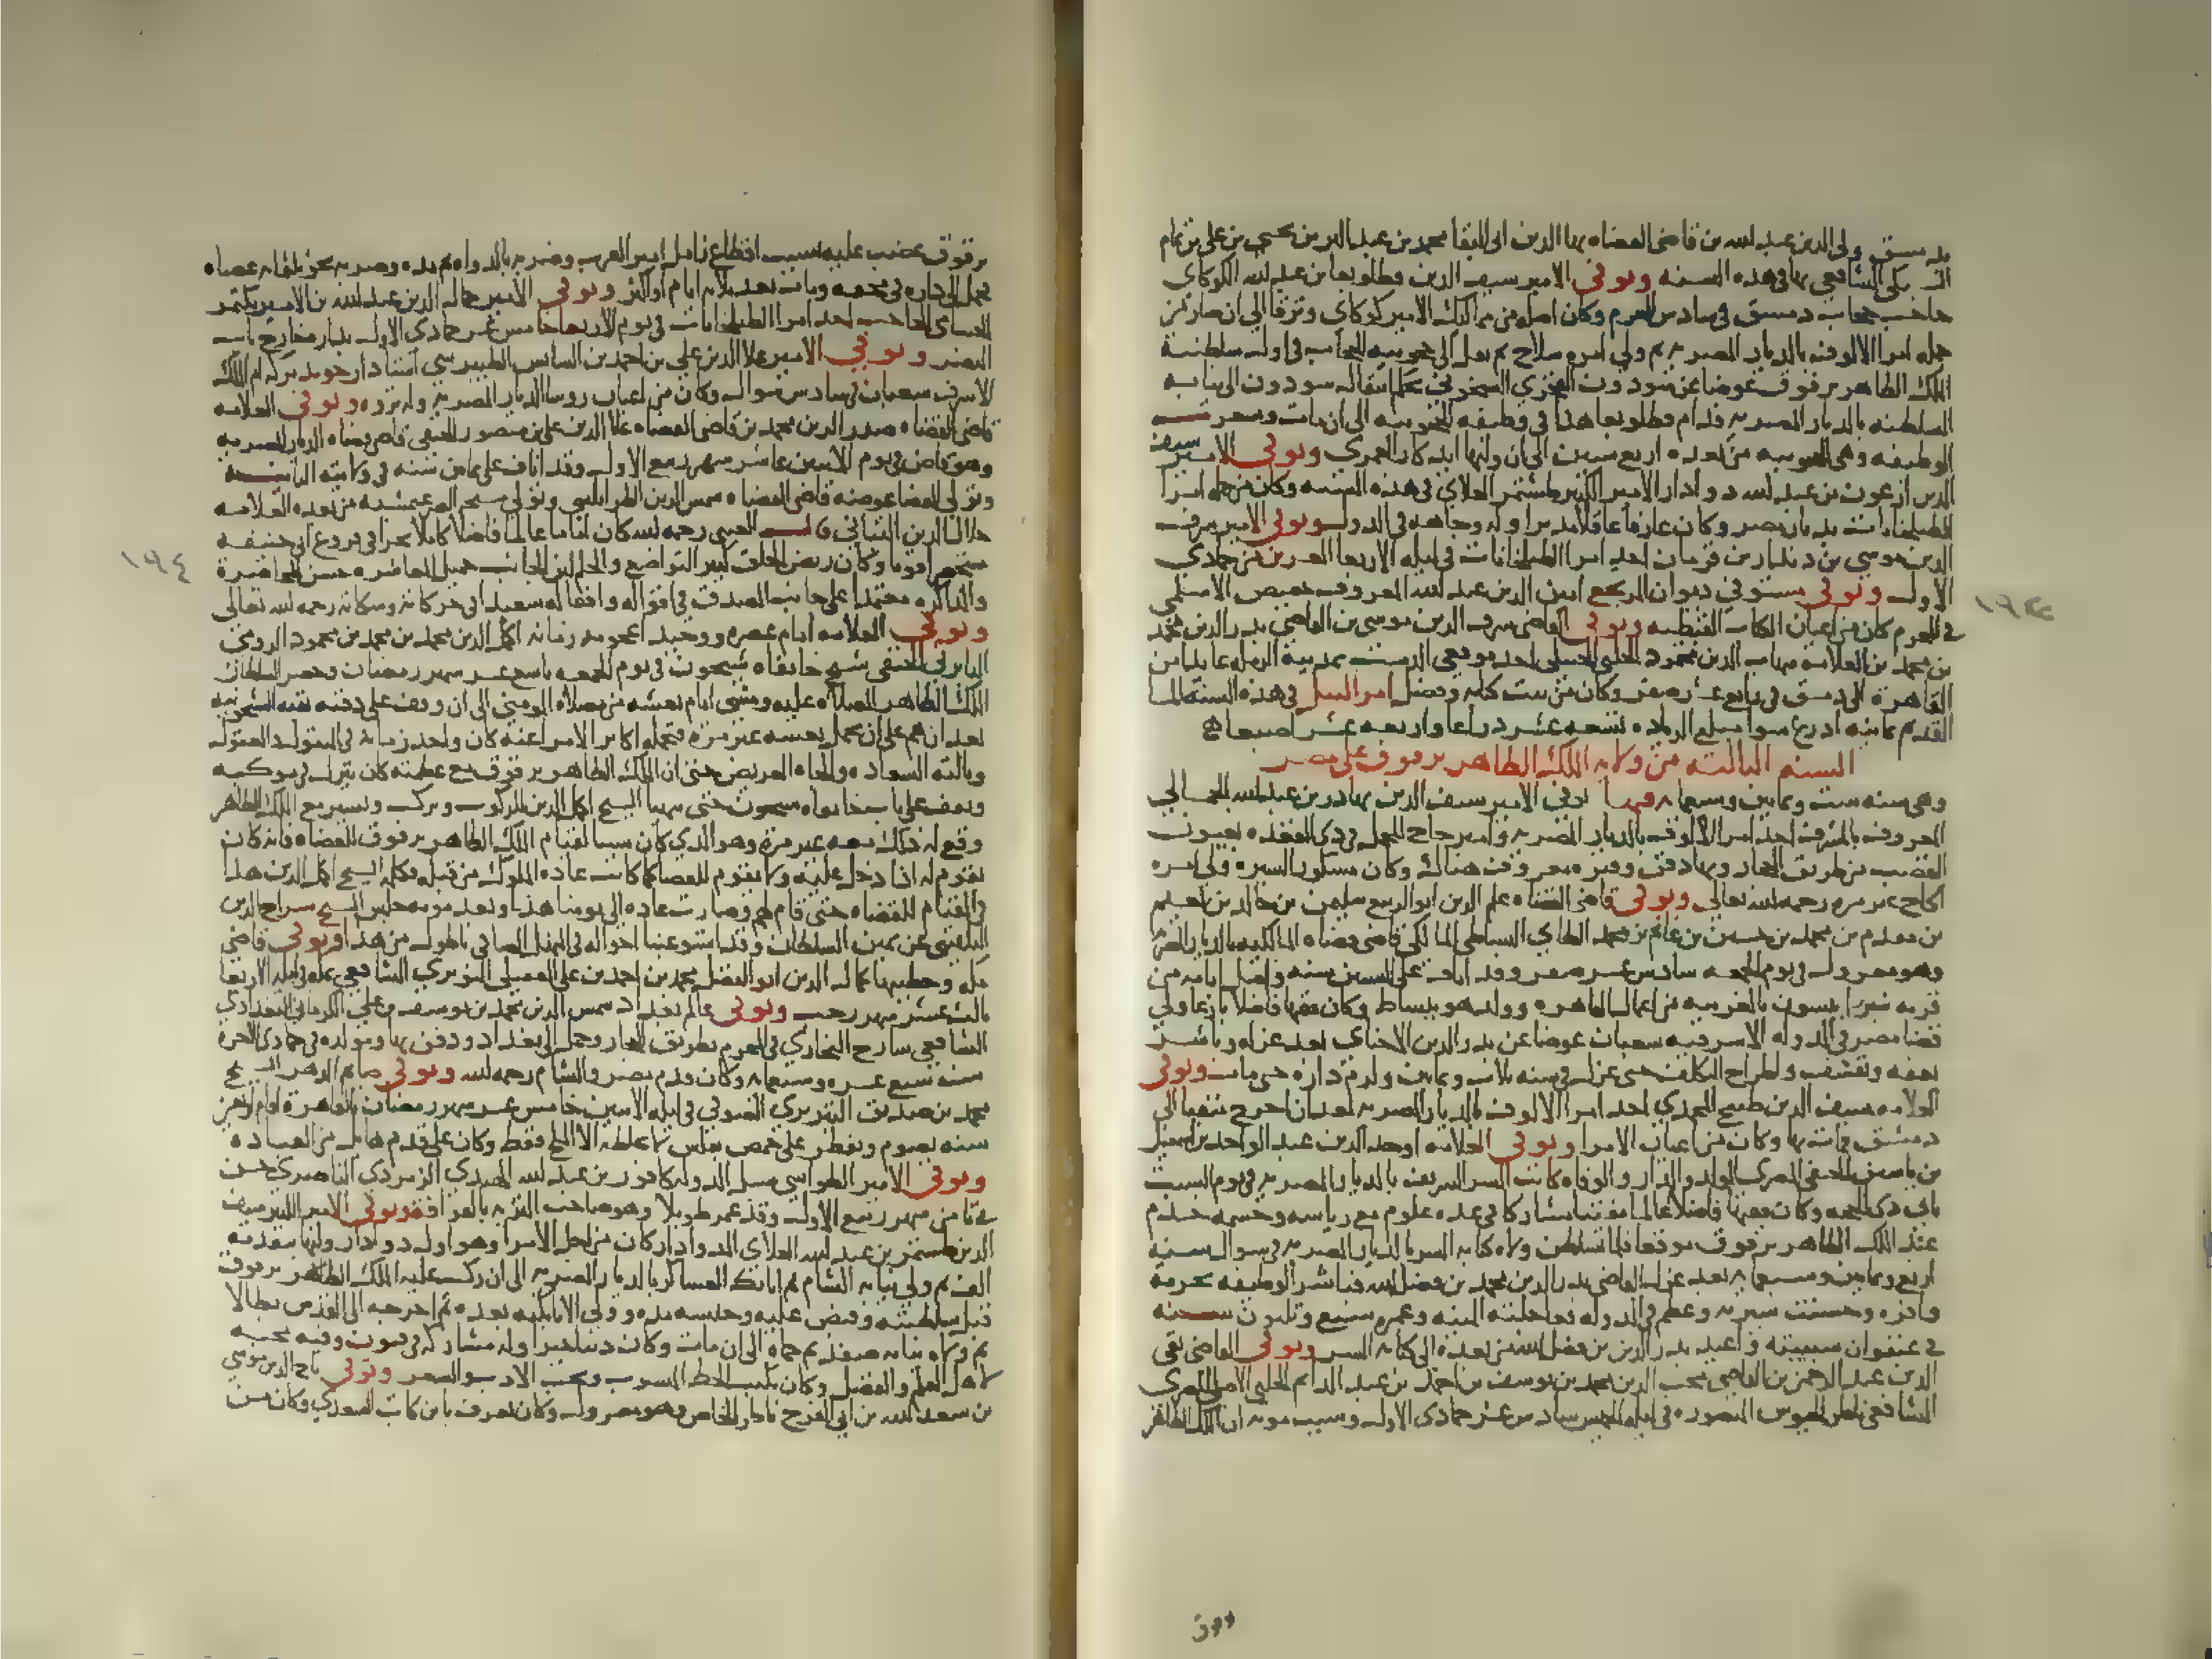 بدمشق ولي الدين عبد الله بن قاضي القضاه بها الدين ابي البقا محمد بن عبد البر بن يحيى بن علي بن تمام
السبكي الشافعي بها في هذه السنه وتوفي الامير سيف الدين قطلوبغا بن عبد الله الكوكاي
حاجب حجاب دمشق في سادس المحرم وكان اصله من مماليك الامير كوكاي وترقا الى ان صار من
جمله امرا الالوف بالديار المصريه ثم ولي امره سلاح ثم نقل الى حجوبيه الحجاب في اوله سلطنه
الملك الظاهر برقوق عوضا عن سودون الفخري الشيخوني بحكم انتقاله سودون الى نيابه
السلطنه بالديار المصريه فدام قطلوبغا هذا في وظيفه الحجوبيه الى ان مات وشغرت
الوظيفه وهي الحجوبيه من بعده اربع سنين الى ان وليها ايدكار العمري وتوفي الامير سيف
الدين ارغون بن عبد الله دوادار الامير الكبير طشتمر العلاي في هذه السنه وكان من جمله امرا
الطبلخانات بديار مصر وكان عارفا عاقلا مدبرا وله وجاهه في الدوله وتوفي الامير شرف
الدين موسى بن دندار بن قرمان احد امرا الطبلخانات في ليله الاربعا العشرين من جمادى
الاولى وتوفي مستوفي ديوان المرتجع امين الدين عبد الله المعروف بجعيص الاسلمي
في المحرم كان من اعيان الكتاب القبطيه وتوفي القاضي شرف الدين موسى بن القاضي بدر الدين محمد
بن محمد بن العلامه شهاب الدين محمود الحلبي الحنبلي احد موقعي الدست بمدينه الرمله عايدا من
القاهرة الى دمشق في تاسع عشر صفر وكان من بيت كتابه وفضل امر النيل في هذه السنه الما
القديم ثمانيه اذرع سوا مبلغ الزياده تسعه عشر ذراعا واربعه عشر اصبعا
السنه الثالثه من ولايه الملك الظاهر برقوق على مصر
وهي سنه ست وثمانين وسبعمايه فيها توفي الامير سيف الدين بهادر بن عبد الله الجمالي
المعروف بالمشرف احد امرا الالوف بالديار المصريه وامير حاج المحمل في ذي القعده بعيون
القصب من طريق الحجاز وبها دفن وقبره معروف هنالك وكان مشكور السيره ولي امره
الحاج غير مره رحمه الله تعالى وتوفي قاضي القضاه علم الدين ابو الربيع سليمن بن خالد بن نعيم
بن مقدم بن محمد بن حسن بن غانم بن محمد الطاي البساطي المالكي قاضي قضاه المالكيه بالديار المصريه
وهو معزول في يوم الجمعه سادس عشر صفر وقد اناف على الستين سنه واصل ابايه من
قريه شبرا بسيون بالغربيه من اعمال القاهره وولد هو ببساط وكان فقيها فاضلا بارعا ولي
قضا مصر في الدوله الاشرفيه شعبان عوضا عن بدر الدين الاخناي بعد عزله وباشر
بعفه وتقشف واطراح التكلف حتى عزل في سنه ثلاث وثمانين ولزم داره حتى مات وتوفي
العلامه سيف الدين طبج المحمدي احد امرا الالوف بالديار المصريه بعد ان اخرج منفيا الى
دمشق فمات بها وكان من اعيان الامرا وتوفي العلامه اوحد الدين عبد الواحد بن اسمعيل
بن ياسين الحنفي المصري المولد والدار والوفاه كاتب السر الشريف بالديار المصريه في يوم السبت
ثاني ذي الحجه وكان فقيها فاضلا عالما مفتنا مشاركا في عده علوم مع رياسه وحشمه خدم
عند الملك الظاهر برقوق موقعا فلما تسلطن ولاه كتابه السر بالديار المصريه في شوال سنه
اربع وثمانين وسبعمايه بعد عزل القاضي بدر الدين محمد بن فضل الله فباشر الوظيفه بحرمه
وافره وحسنت سيرته وعظم في الدوله فعاجلته المنيه وعمره سبع وثلثون سنه
في عنفوان شبيبته واعيد بدر الدين بن فضل الله من بعده الى كتابه السر وتوفي القاضي تقي
الدين عبد الرحمن بن القاضي محب الدين محمد بن يوسف بن احمد بن عبد الدايم الحلبي الاصل المصري
الشافعي ناظر الجيوش المنصوره في ليله الخميس سادس عشر جمادى الاولى وسبب موته ان الملك الظاهر
برقوق غضب عليه بسبب اقطاع زامل امير العرب وضربه بالدواه ثم مده وضربه نحو ثلثمايه عصاه
فحمل الى داره في محفه ومات بعد ثلاثه ايام او اكثر وتوفي الامير جمال الدين عبد الله بن الامير بكتمر
الحسامي الحاجب احد امرا الطبلخانات في يوم الاربعا خامس عشر جمادى الاولى بداره خارج باب
النصر وتوفي الامير علا الدين علي بن احمد بن السايس الطيبرسي استادار خوند بركه ام الملك
الاشرف شعبان في سادس شوال وكان من اعيان روسا الديار المصريه وله ثروه وتوفي العلامه
قاضي القضاه صدر الدين محمد بن قاضي القضاه علا الدين علي بن منصور الحنفي قاضي قضاه الديار المصريه
وهو قاض في يوم الاثنين عاشر شهر ربيع الاول وقد اناف على ثمانين سنه في ولايته الثانيه
وتولى القضا عوضه قاضي القضاه شمس الدين الطرابلسي وتولى مشيخه الصرغتمشيه من بعده العلامه
جلال الدين التباني قال العيني رحمه الله كان اماما عالما فاضلا كاملا بحرا في فروع ابي حنيفه
مستحضرا قويا وكان ريض الخلق كثير التواضع والحلم لين الجانب جميل المعاشره حسن المحاضرة
والمذاكره معتمدا على جانب الصدق في اقواله وافعاله سعيدا في حركاته وسكاته رحمه الله تعالى
وتوفي العلامه امام عصره ووحيد دهره واعجوبه زمانه اكمل الدين محمد بن محمد بن محمود الرومي
البابرتي الحنفي شيخ خانقاه شيخون في يوم الجمعه تاسع عشر شهر رمضان وحضر السلطان
الملك الظاهر الصلاه عليه ومشى امام نعشه من مصلاه المومني الى ان وقف على دفنه بقبه الشيخونيه
بعد ان هم على ان يحمل نعشه غير مرة فتحمله اكابر الامرا عنه كان واحد زمانه في المنقول والمعقول
ونالته السعاده والجاه العريض حتى ان الملك الظاهر برقوق مع عظمته كان ينزل في موكبه
ويقف على باب خانقاه شيخون حتى يتهيا الشيخ اكمل الدين للركوب ويركب ويسير مع الملك الظاهر
وقع له ذلك معه غير مرة وهو الذي كان سببا لقيام الملك الظاهر برقوق للقضاه فانه كان
يقوم له اذا دخل عليه ولا يقوم للقضاه كما كانت عاده الملوك من قبله فكلمه الشيخ اكمل الدين هذا
في القيام للقضاه حتى قام لهم وصارت عاده الى يومنا هذا وبعد موته جلس الشيخ سراج الدين
البلقيني عن يمين السلطان وقد استوعبنا احواله في المنهل الصافي باطول من هذا وتوفي قاضي
مكه وخطيبها كمال الدين ابو الفضل محمد بن احمد بن علي العقيلي النويري الشافعي بمكه في ليله الاربعا
ثالث عشر شهر رجب وتوفي عالم بغداد شمس الدين محمد بن يوسف بن علي الكرماني البغدادي
الشافعي شارح البخاري في المحرم بطريق الحجاز وحمل الى بغداد ودفن بها ومولده في جمادى الاخرة
سنه سبع عشره وسبعمايه وكان قدم مصر والشام رحمه الله وتوفي صايم الدهر الشيخ
محمد بن صديق التبريزي الصوفي في ليله الاثنين خامس عشر شهر رمضان بالقاهرة اقام اربعين
سنه يصوم ويفطر على حمص بفلس لا يخلطه الا بالملح فقط وكان على قدم هايل من العباده
وتوفي الامير الطواشي شبل الدوله كافور بن عبد الله الهندي الزمردي الناصري حسن
في ثامن شهر ربيع الاول وقد عمر طويلا وهو صاحب التربه بالقرافه وتوفي الامير الكبير سيف
الدين طشتمر بن عبد الله العلاي الدوادار كان من اجل الامرا وهو اول دوادار وليها بتقدمه
الف ثم ولي نيابه الشام ثم اتابك العساكر بالديار المصريه الى ان ركب عليه الملك الظاهر برقوق
قبل سلطنته وقبض عليه وحبسه مده وولي الاتابكيه بعده ثم اخرجه الى القدس بطالا
ثم ولاه نيابه صفد ثم حماه الى ان مات وكان دينا خيرا وله مشاركه في فنون وفيه محبه
لاهل العلم والفضل وكان يكتب الخط المنسوب ويحب الادب والشعر وتوفي تاج الدين موسى
بن سعد الله بن ابي الفرج ناظر الخاص وهو معزول وكان يعرف بابن كاتب السعدي وكان من